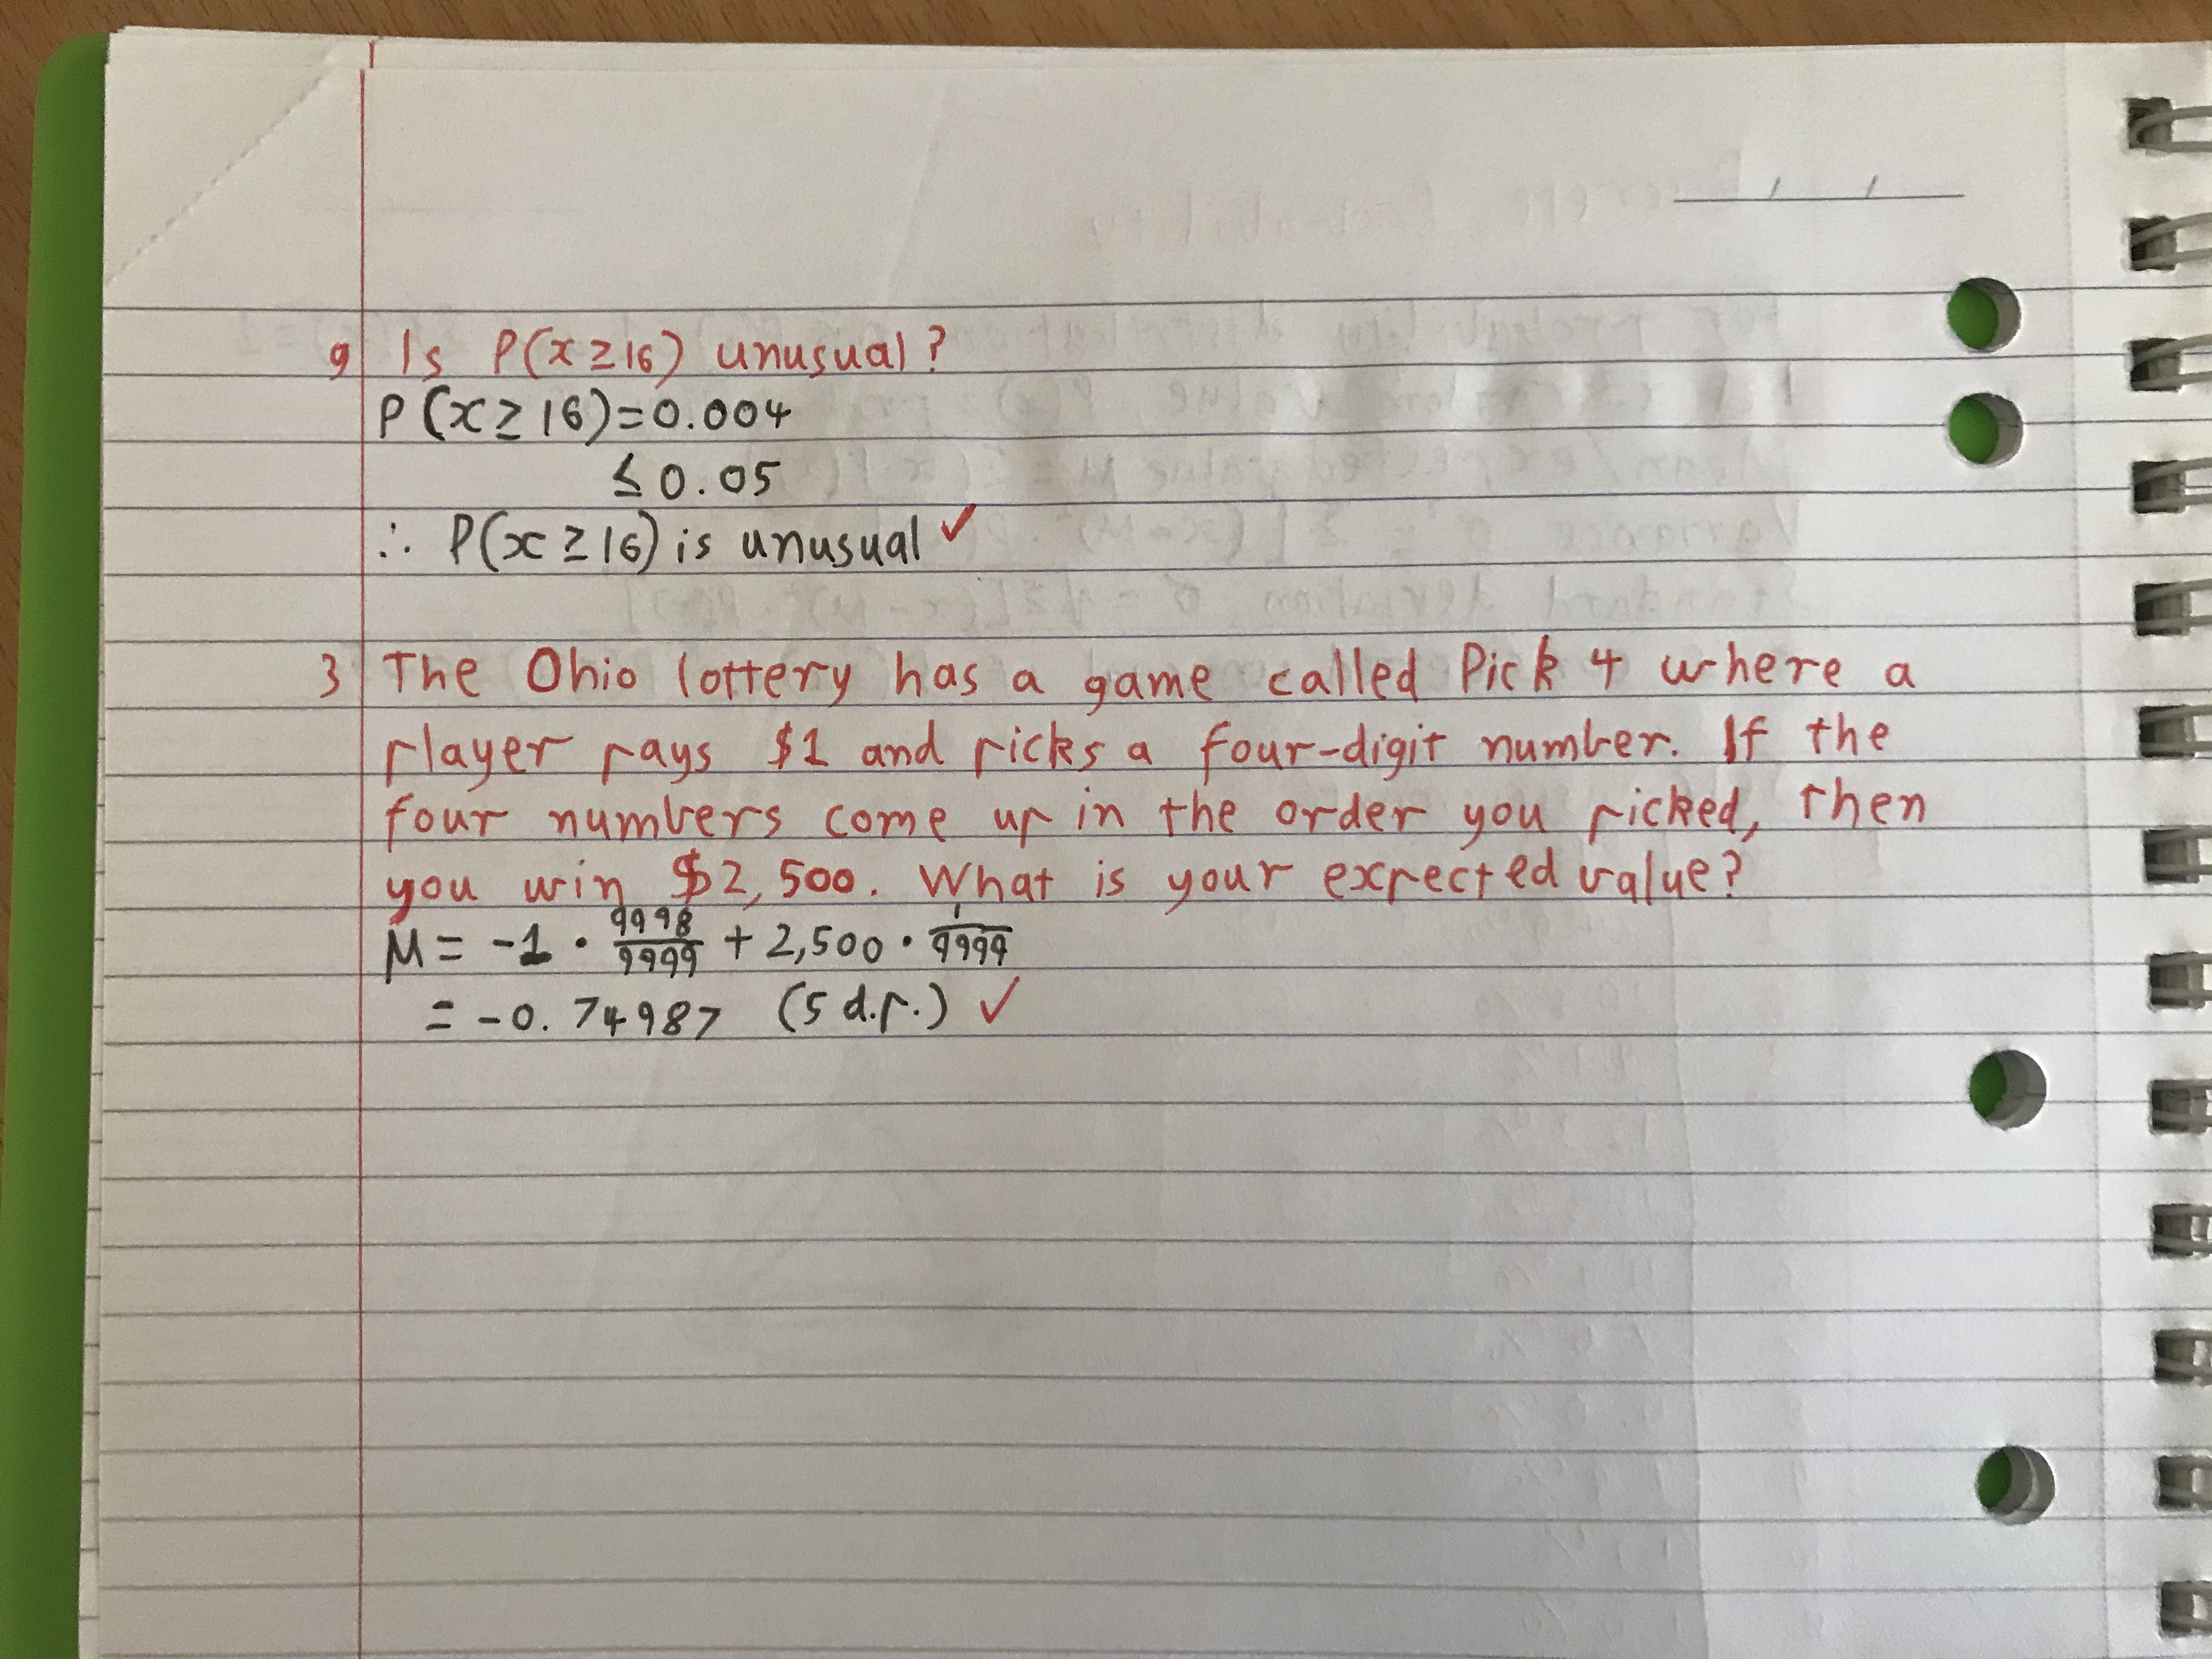 g Is P(x≥16) unusual?
P(x≥16)=0.004
≤0.05
∴ P(x≥16) is unusual ✓
3 The Ohio lottery has a game called Pick 4 where a
player pays $1 and picks a four-digit number. If the
four numbers come up in the order you picked, then
you win $2,500. What is your expected value?
M = -1 · 9998/9999 + 2,500 · 1/9999
= -0.74987 (5 d.p.) ✓